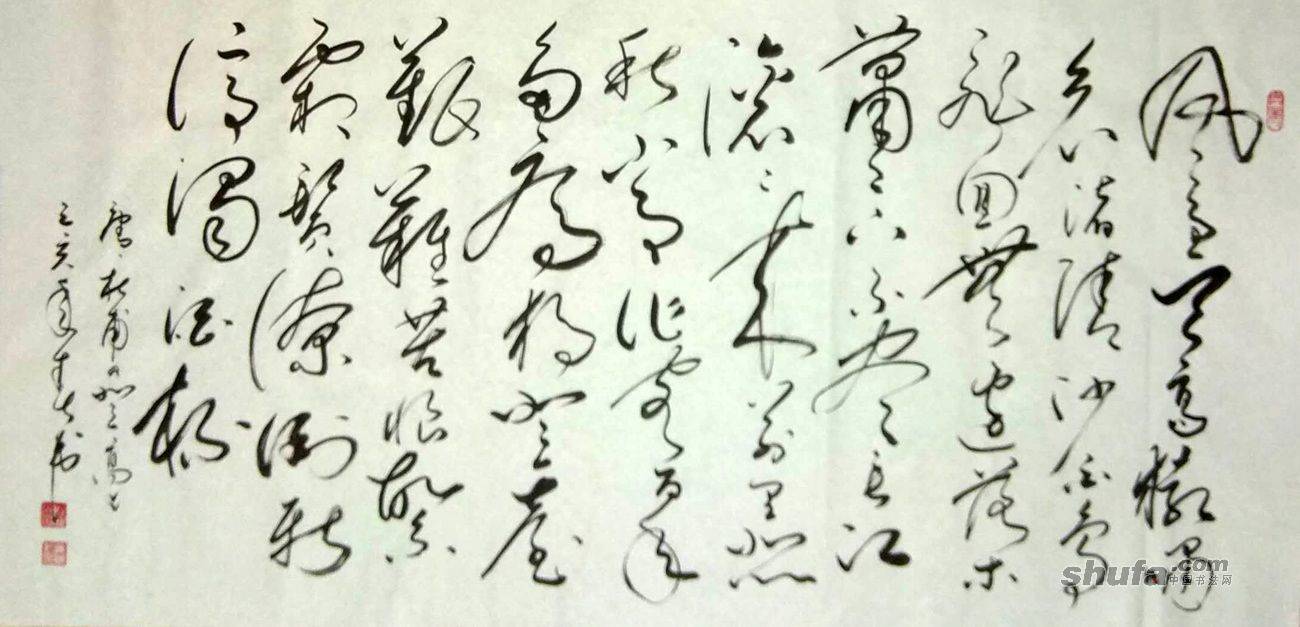 風急天高猿嘯
哀渚清沙白鳥
飛回無邊落木
蕭々下不盡長江
滾々來萬里悲
秋常作客百年
多病獨登臺
艱難苦恨繁
霜鬢潦倒新
停濁酒杯
唐杜甫登高
亥年书
shufa.com
中国书法网